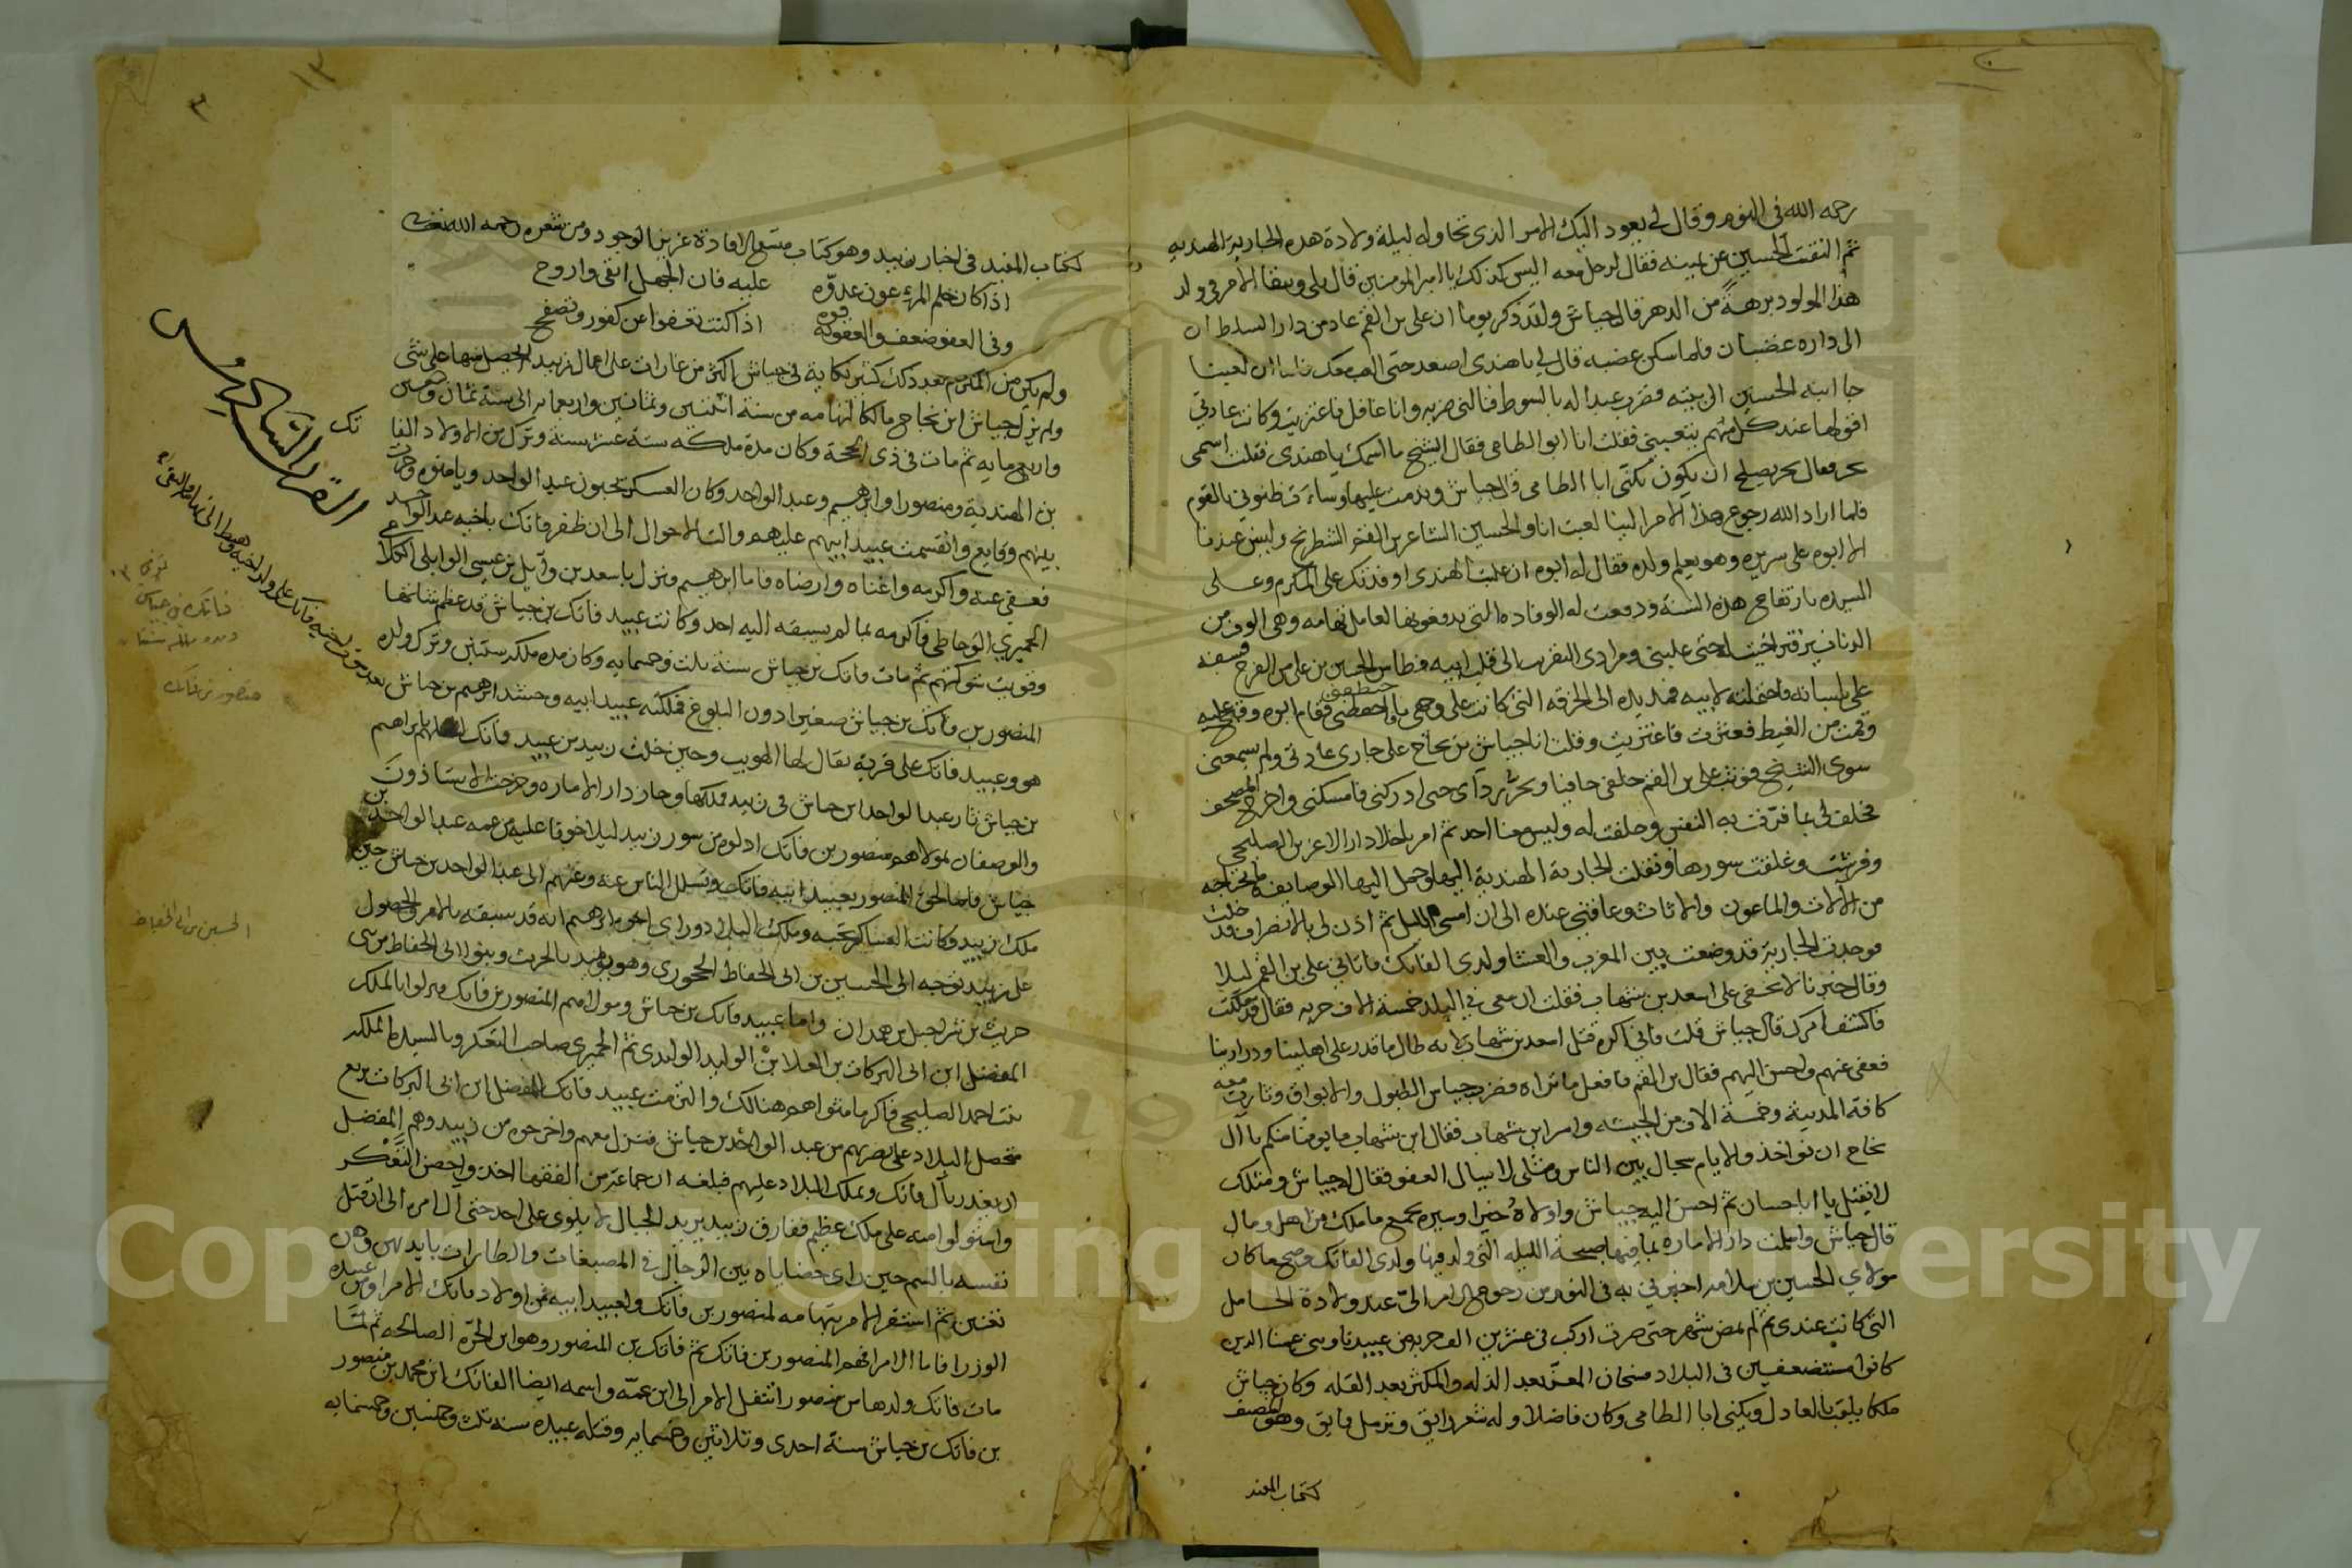 رحمه الله في النوم وقال لي يعود اليك الامر الذي تحاوله ليلة ولادة هذه الجارية الهنديه
ثم التفت الحسين عن يمينه فقال لرجل معه اليس كذلك يا امير المومنين قال بلى ويبقا الامر في ولد
هذا المولود برهة من الدهر قال جياش ولقد ذكر يوما ان علي بن القم عاد من دار السلطان
الى داره غضبان فلما سكن غضبه قال لي يا هندي اصعد حتى العب معك
جا ابنه الحسين الى بيته فضرب عبدا له بالسوط فنالني ضربه وانا غافل فاعتزيت وكانت عادتي
اقولها عند كل منهم يتعبني فقلت انا ابو الطامي فقال الشيخ ما اسمك يا هندي فقلت اسمي
بحر فقال بحر يصلح ان يكون يكنى ابا الطامي قال جياش وندمت عليها وساءت ظنوني بالقوم
فلما اراد الله رجوع هذا الامر الينا لعبت انا والحسين الشاعر بن القم الشطرنج وليس عندنا
الا ابوه على سريره وهو يعلم ولده فقال له ابوه ان غلبت الهندي اوفدتك على المكرم وعلى
السيده بارتفاع هذه السنة ودفعت له الوفاده التي يدفعونها لعامل تهامه وهي الوف من
الدنانير فتراخيت له حتى غلبني ومرادي التقرب الى قلب ابيه فطاش الحسين بن علي من الفرح فسفه
علي بلسانه فاحتملته لابيه فمد يده الى الخرقه التي كانت على وجهي فاحفظني فقام ابوه وقبح عليه
وقمت من الغيظ فعثرت فاعتزيت وقلت انا جياش بن نجاح على جاري عادتي ولم يسمعني
سوى الشيخ فوثب علي بن القم خلفي حافيا ويجر رداه حتى ادركني فامسكني واخرج المصحف
فحلف لي بما قرت به النفس وحلفت له وليس معنا احد ثم امر باخلا دار الاعز بن الصليحي
وفرشت وغلقت سورها ونقلت الجارية الهندية اليها وحمل اليها الوصايف
من الالات والماعون والاثاث وعافني عنده الى ان امسى الليل ثم اذن لي بالانصراف فدخلت
فوجدت الجارية قد وضعت بين المغرب والعشا ولدي الفاتك فاتاني علي بن القم ليلا
وقال خبرنا لا يخفى على اسعد بن شهاب فقلت ان معي في البلد خمسة الاف حربه فقال قد ملكت
فاكشف امرك قال جياش قلت فاني اكره قتل اسعد بن شهاب لانه طال ما قدر على اهلينا وذرارينا
فعفى عنهم واحسن اليهم فقال بن القم فافعل ما تراه فضرب جياش الطبول والابواق وثارت معه
كافة المدينة وخمسة الاف من الحبشه وامر ابن شهاب فقال ابن شهاب ما يومنا منكم يا ال
نجاح ان نواخذ والايام سجال بين الناس ومثلي لا يسال العفو فقال له جياش ومثلك
لا يقتل يا ابا حسان ثم احسن اليه جياش واولاه خيرا وسيره بجميع ما ملك من اهل ومال
قال جياش وتسلمت دار الامارة بما فيها صبحة الليله التي ولد فيها ولدي الفاتك وصح ما كان
مولاي الحسين بن سلامه اخبرني به في النوم من رجوع الامر الي عند ولادة الحامل
التي كانت عندي ثم لم يمض شهر حتى صرت اركب في عشرين الف حربه من عبيدنا وبني عمنا الذين
كانوا مستضعفين في البلاد فسبحان المعز بعد الذله والمكثر بعد القله وكان جياش
ملكا يلقب بالعادل ويكنى ابا الطامي وكان فاضلا وله شعر رايق وترسل فايق وهو المصنف
كتاب المفيد
١٣
٣
كتاب المفيد في اخبار زبيد وهو كتاب متسع الافادة عزيز الوجود ومن شعره رحمه الله تعالى
اذا كان حلم المرء عون عدوه عليه فان الجهل ابقى واروح
وفي العفو ضعف والعقوبة قوه اذا كنت تعفوا عن كفور وتصفح
ولم يكن من المكرم بعد ذلك كثير نكاية في جياش اكثر من غارات على اعمال زبيد لا يحصل منها على شي
ولم يزل جياش ابن نجاح مالكا لتهامه من سنة اثنتين وثمانين واربعمايه الى سنة ثمان وتسعين
واربعمايه ثم مات في ذي الحجة وكان مدة ملكه ستة عشر سنة وترك من الاولاد الفاتك
بن الهندية ومنصورا وابرهيم وعبد الواحد وكان العسكر يحبون عبد الواحد ويامنوه وجرت
بينهم وقايع وانقسمت عبيد ابيهم عليهم والت الاحوال الى ان ظفر فاتك باخيه عبد الواحد
فعفى عنه واكرمه واغناه وارضاه فاما ابرهيم ونزل باسعد بن وايل بن عيسى الوايلي الكلاعي
الحميري الوحاظي فاكرمه بما لم يسبقه اليه احد وكانت عبيد فاتك بن جياش قد عظم شانها
وقويت شوكتهم ثم مات فاتك بن جياش سنة ثلث وخمسمايه وكان مده ملكه سنتين وترك ولده
المنصور بن فاتك بن جياش صغيرا دون البلوغ فملكته عبيد ابيه وحشد ابرهيم بن جياش
هو وعبيد فاتك على قرية يقال لها الهويب وحين خلت زبيد من عبيد فاتك بابراهيم
بن جياش ثار عبد الواحد ابن جياش في زبيد فملكها وحاز دار الاماره وخرجت الاستاذون
والوصفان بمولاهم منصور بن فاتك ادلوه من سور زبيد ليلا خوفا عليه من عمه عبد الواحد بن
جياش فلما لحق المنصور بعبيد ابيه فاتك وتسلل الناس عنه وعنهم الى عبد الواحد بن جياش حين
ملك زبيد وكانت العساكر تحبه وملك البلاد وراى اخوه ابرهيم انه قد سبقه بالامر والحصول
على زبيد توجه الى الحسين بن ابي الحفاظ الحجوري وهو يوميذ بالحريث وبنوا ابي الحفاظ من بني
حريث بن شراحيل من همدان واما عبيد فاتك بن جياش ومولاهم المنصور بن فاتك فنزلوا بالملك
المفضل ابن ابي البركات بن العلا بن الوليد ثم الحميري صاحب التعكر وبالسيده الملكه
بنت احمد الصليحي فاكرما مثواهم هنالك والتزمت عبيد فاتك للمفضل ابن ابي البركات بربع
متحصل البلاد على نصرتهم من عبد الواحد بن جياش فنزل معهم واخرجوه من زبيد وهم المفضل
ان يغدر بآل فاتك ويملك البلاد عليهم فبلغه ان جماعة من الفقها اخذوا حصن التعكر
واستولوا منه على ملك عظيم ففارق زبيد يريد الجبال لا يلوي على احد حتى آل امره الى ان قتل
نفسه بالسم حين راى حضاياه بين الرجال في المصبغات والطارات بايديهن وهن
تغنين ثم استقر الامر بتهامه لمنصور بن فاتك ولعبيد ابيه فمن اولاد فاتك الامرا ومن عبيده
الوزرا فاما الامرا فهم المنصور بن فاتك ثم فاتك بن المنصور وهو ابن الحرة الصالحه ثم لما
مات فاتك ولدها بن منصور انتقل الامر الى ابن عمه واسمه ايضا الفاتك ابن محمد بن منصور
بن فاتك بن جياش سنة احدى وثلاثين وخمسمايه وقتله عبيده سنة ثلث وخمسين وخمسمايه
فاتك بن جياش
منصور بن فاتك
الحسين بن ابي الحفاظ
Copyright © King Saud University